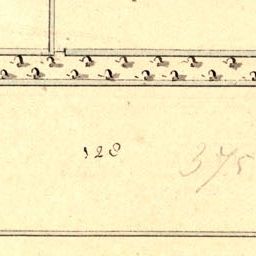 128
375